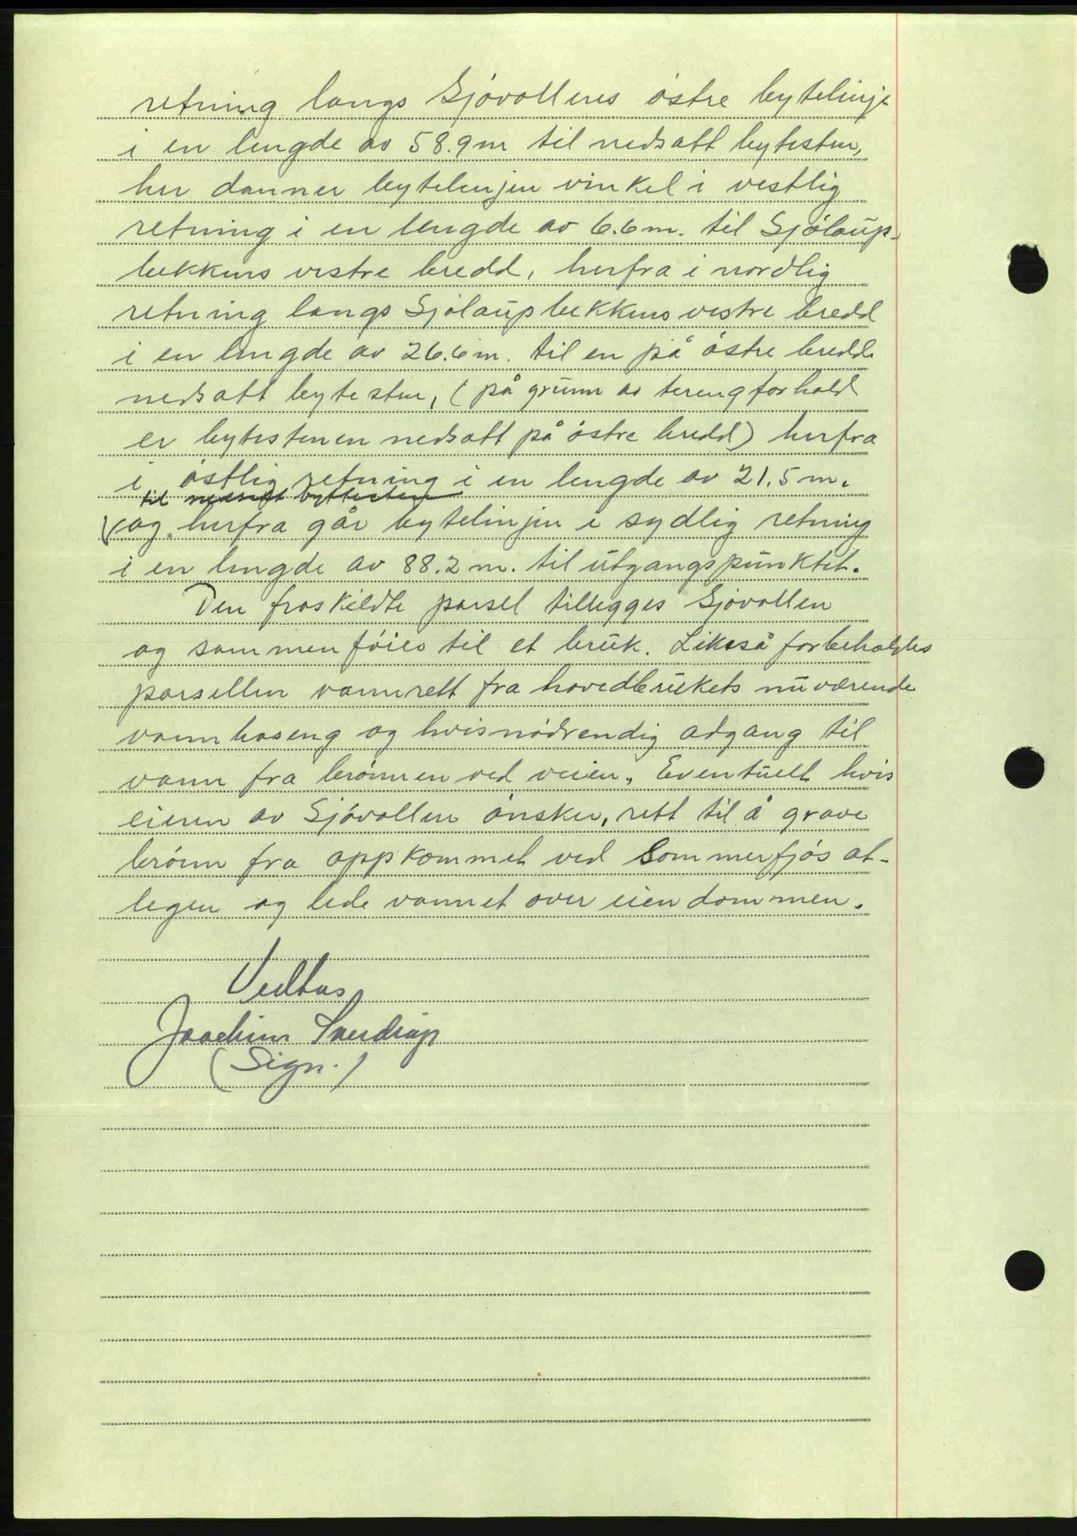 retning langs Sjóvollens óstre bytelinje
i en lengde av 58.9 m til nedsatt bytesten,
her danner bytelinjen vinkel i vestlig
retning i en lengde av 6.6 m. til Sjólaup-
bekkens vestre bredd, herfra i nordlig
retning langs Sjólaupbekkens vestre bredd
i en lengde av 26.6 m. til en på óstre bredd
nedsatt bytesten, (på grunn av terengforhold
er bytestenen nedsatt på óstre bredd) herfra
i óstlig retning i en lengde av 21.5 m.
til nedsatt byttesten
og herfra går bytelinjen i sydlig retning
i en lengde av 88.2 m. til utgangspunktet.
Den fraskildte parsel tillegges Sjóvollen
og sammenfóies til et bruk. Likeså forbeholdes
parsellen vannrett fra hovedbrukets nuværende
vannbaseng og hvis nódvendig adgang til
vann fra brónnen ved veien. Eventuelt hvis
eieren av Sjóvollen ónsker, rett til å grave
brónn fra oppkommet ved Sommerfjós at-
legen og lede vannet over eiendommen.
Vedtas
Joachim Sverdrup
(Sign.)